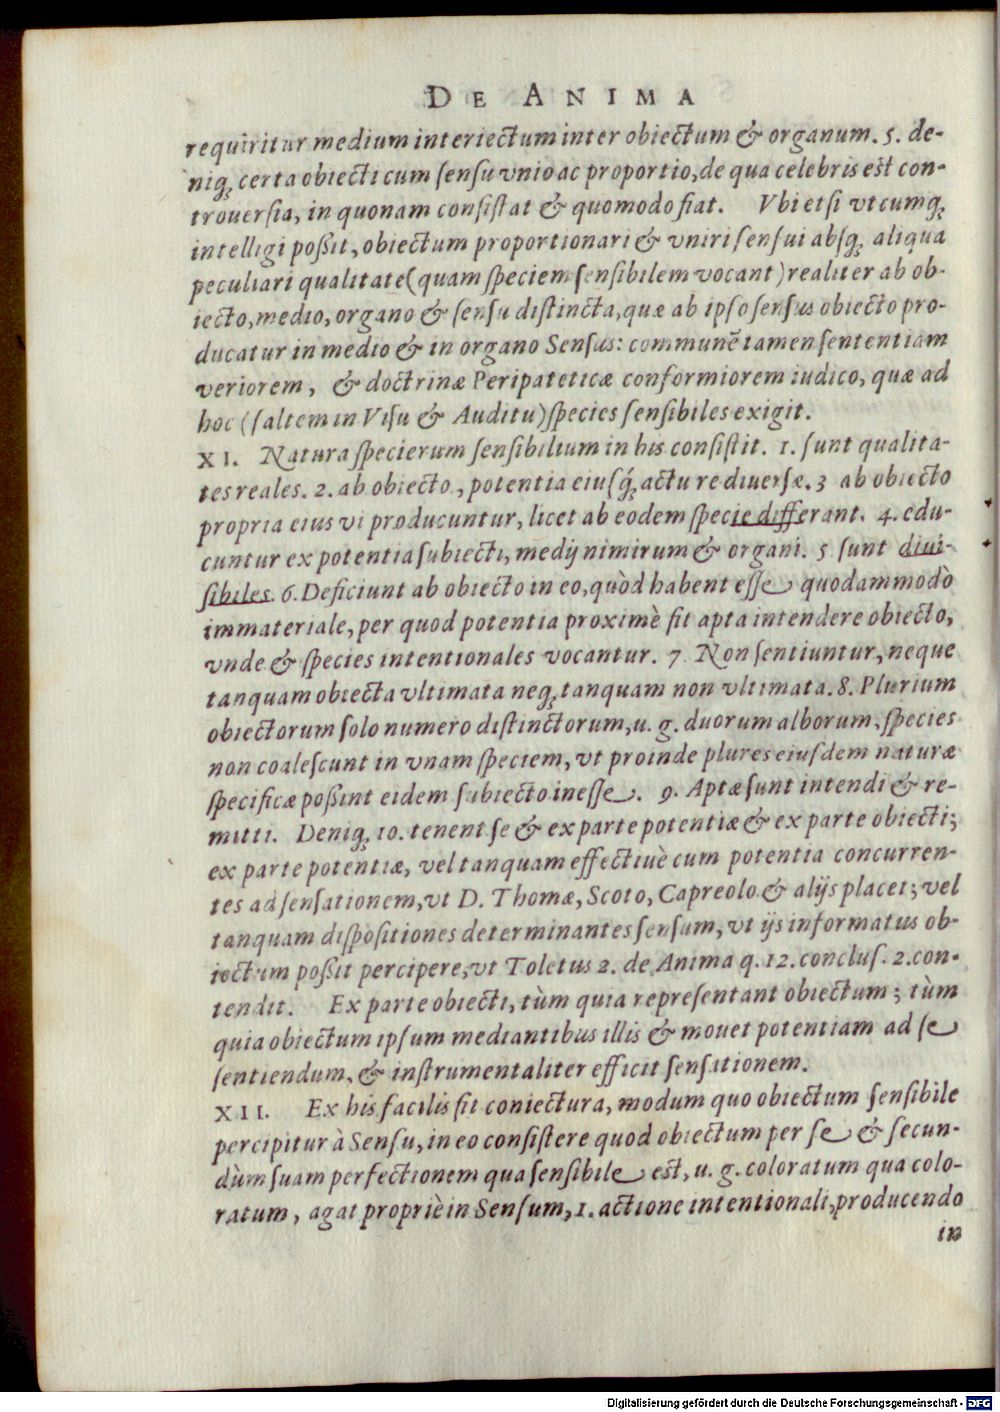 DE ANIMA
requiritur medium interiectum inter obiectum & organum. 5. de-
niq; certa obiecti cum sensu vnio ac proportio, de qua celebris est con-
trouersia, in quonam consistat & quomodo fiat. Vbi etsi vtcumq;
intelligi poßit, obiectum proportionari & vniri sensui absq; aliqua
peculiari qualitate (quam speciem sensibilem vocant) realiter ab ob-
iecto, medio, organo & sensu distincta, quæ ab ipso sensus obiecto pro-
ducatur in medio & in organo Sensus: communẽ tamen sententiam
veriorem, & doctrinæ Peripateticæ conformiorem iudico, quæ ad
hoc (saltem in Visu & Auditu) species sensibiles exigit.
XI. Natura specierum sensibilium in his consistit. 1. sunt qualita-
tes reales. 2. ab obiecto, potentia eiusq́; actu re diuersæ. 3 ab obiecto
propria eius vi producuntur, licet ab eodem specie differant. 4. edu-
cuntur ex potentia subiecti, medij nimirum & organi. 5 sunt diui-
sibiles. 6. Deficiunt ab obiecto in eo, quòd habent esse quodammodò
immateriale, per quod potentia proximè fit apta intendere obiecto,
vnde & species intentionales vocantur. 7 Non sentiuntur, neque
tanquam obiecta vltimata neq; tanquam non vltimata. 8. Plurium
obiectorum solo numero distinctorum, u. g. duorum alborum, species
non coalescunt in vnam speciem, vt proinde plures eiusdem naturæ
specificæ poßint eidem subiecto inesse. 9. Aptæ sunt intendi & re-
mitti. Deniq; 10. tenent se & ex parte potentiæ & ex parte obiecti;
ex parte potentiæ, vel tanquam effectiuè cum potentia concurren-
tes ad sensationem, vt D. Thomæ, Scoto, Capreolo & alijs placet; vel
tanquam dispositiones determinantes sensum, vt ijs informatus ob-
iectum poßit percipere, vt Toletus 2. de Anima q. 12. conclus. 2. con-
tendit. Ex parte obiecti, tùm quia repræsentant obiectum; tùm
quia obiectum ipsum mediantibus illis & mouet potentiam ad se
sentiendum, & instrumentaliter efficit sensationem.
XII. Ex his facilis fit coniectura, modum quo obiectum sensibile
percipitur à Sensu, in eo consistere quod obiectum per se & secun-
dùm suam perfectionem qua sensibile est, u. g. coloratum qua colo-
ratum, agat propriè in Sensum, 1. actione intentionali, producendo
in
Digitalisierung gefördert durch die Deutsche Forschungsgemeinschaft - DFG